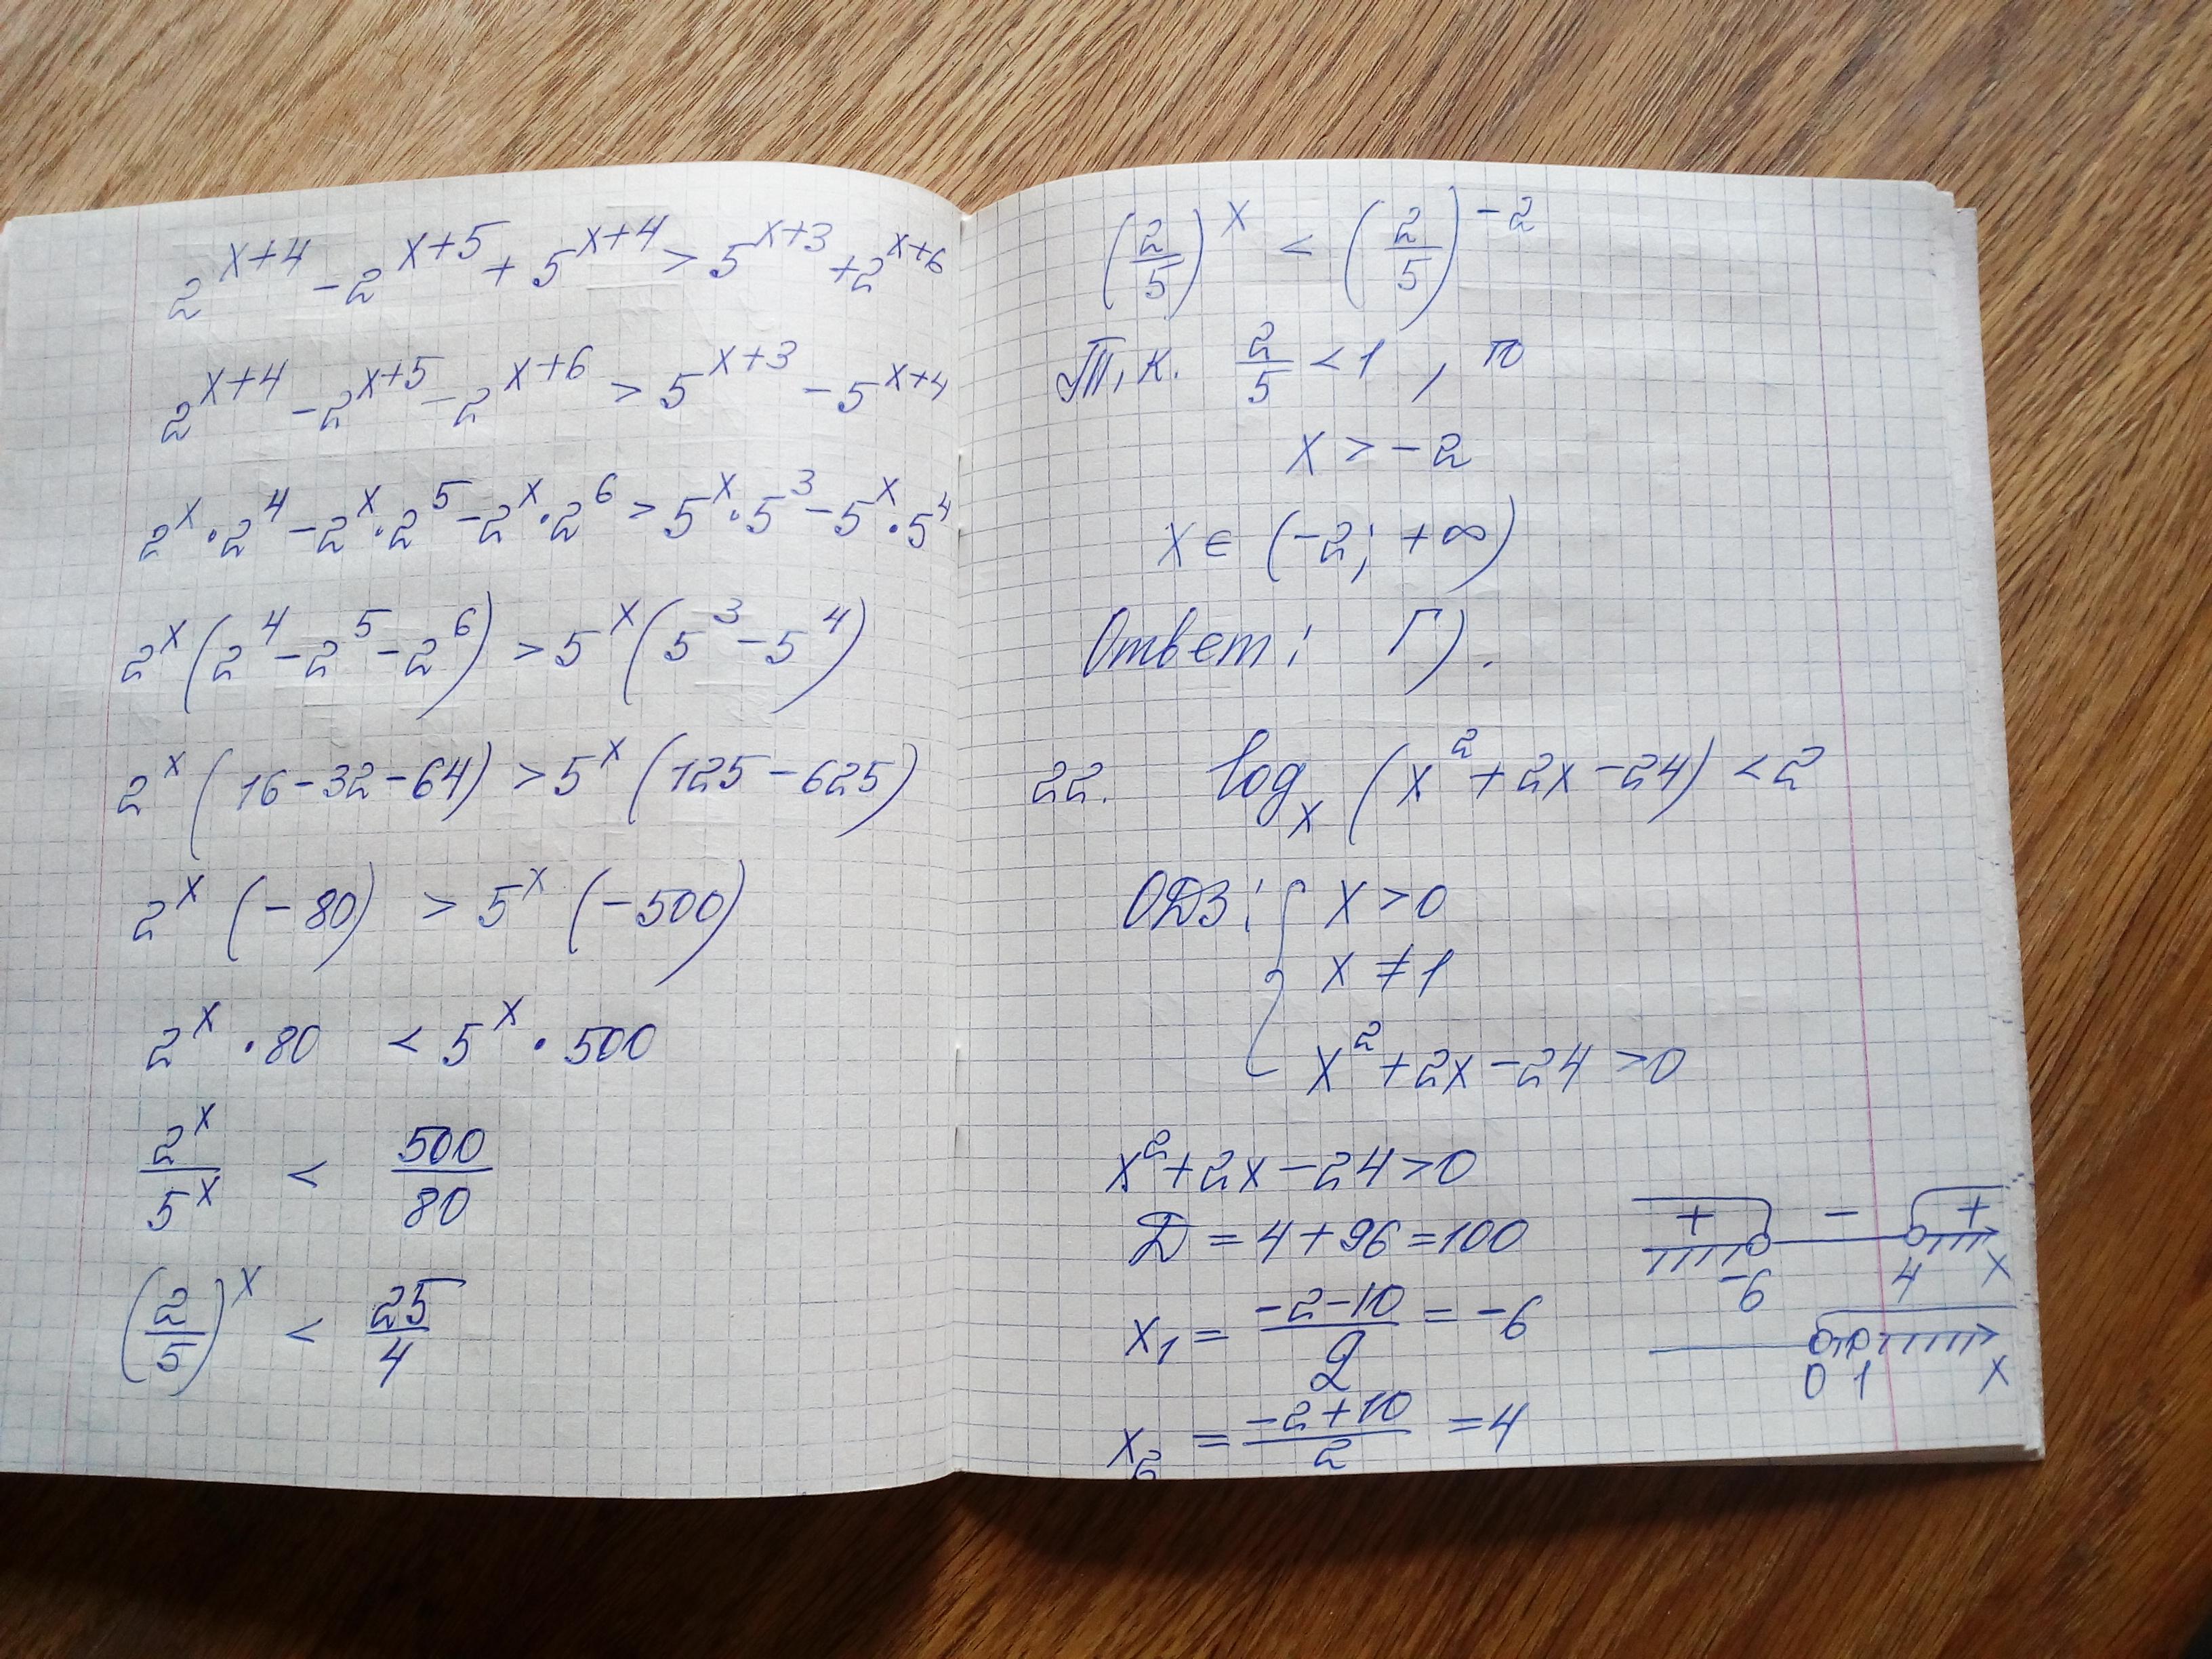 2^{x+4} - 2^{x+5} + 5^{x+4} > 5^{x+3} + 2^{x+6}
2^{x+4} - 2^{x+5} - 2^{x+6} > 5^{x+3} - 5^{x+4}
2^x · 2^4 - 2^x · 2^5 - 2^x · 2^6 > 5^x · 5^3 - 5^x · 5^4
2^x (2^4 - 2^5 - 2^6) > 5^x (5^3 - 5^4)
2^x (16 - 32 - 64) > 5^x (125 - 625)
2^x (-80) > 5^x (-500)
2^x · 80 < 5^x · 500
2^x/5^x < 500/80
(2/5)^x < 25/4
(2/5)^x < (2/5)^{-2}
Т.к. 2/5 < 1, то
x > -2
x ∈ (-2; +∞)
Ответ: Г).
22. log_x (x^2 + 2x - 24) < 2
ОДЗ: { x > 0
x ≠ 1
x^2 + 2x - 24 > 0
x^2 + 2x - 24 > 0
Д = 4 + 96 = 100
x_1 = (-2-10)/2 = -6
x_2 = (-2+10)/2 = 4
+ - +
-6 4 x
0 1 x